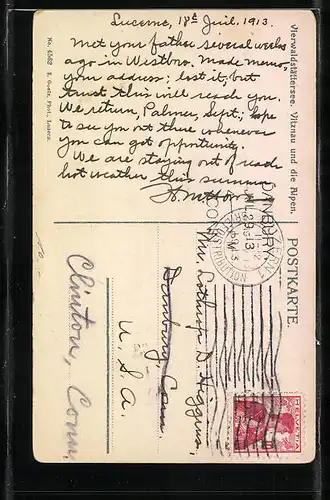 Lucerne, 18th Juil. 1913.
Met your father several weeks
ago in Westboro. Made memo
your address; lost it, but
trust this will reach you.
We return, Palmer, Sept; hope
to see you out there whenever
you can get opportunity.
We are staying out of reach
hot weather this summer
Vierwaldstättersee. Vitznau und die Alpen.
No. 4562 E. Goetz, Phot., Luzern.
POSTKARTE.
DANBURY
1913
Mr. Lothrop D. Higgins,
Danbury, Conn.
U. S. A.
Clinton, Conn
HELVETIA